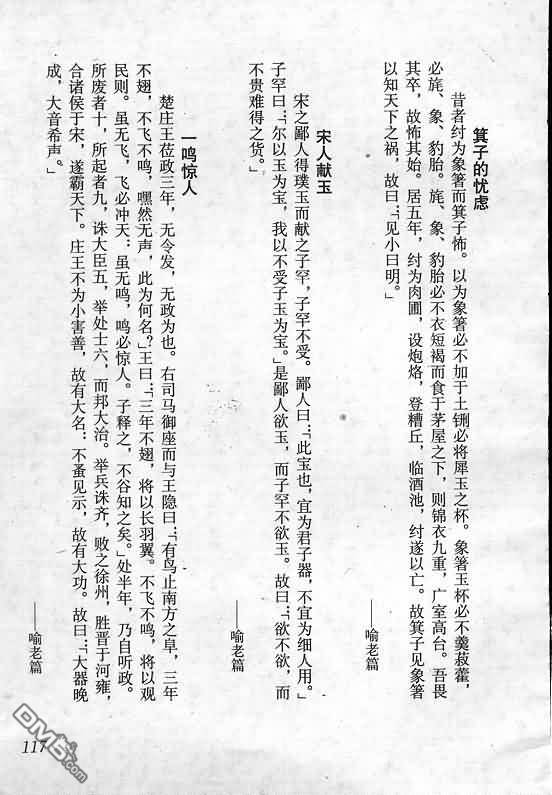 箕子的忧虑
昔者纣为象箸而箕子怖。以为象箸必不加于土铏必将犀玉之杯。象箸玉杯必不羹菽藿，
必旄、象、豹胎。旄、象、豹胎必不衣短褐而食于茅屋之下，则锦衣九重，广室高台。吾畏
其卒，故怖其始。居五年，纣为肉圃，设炮烙，登糟丘，临酒池，纣遂以亡。故箕子见象箸
以知天下之祸，故曰：「见小曰明。」
——喻老篇
宋人献玉
宋之鄙人得璞玉而献之子罕，子罕不受。鄙人曰：「此宝也，宜为君子器，不宜为细人用。」
子罕曰：「尔以玉为宝，我以不受子玉为宝。」是鄙人欲玉，而子罕不欲玉。故曰：「欲不欲，而
不贵难得之货。」
——喻老篇
一鸣惊人
楚庄王莅政三年，无令发，无政为也。右司马御座而与王隐曰：「有鸟止南方之阜，三年
不翅，不飞不鸣，嘿然无声，此为何名？」王曰：「三年不翅，将以长羽翼。不飞不鸣，将以观
民则。虽无飞，飞必冲天；虽无鸣，鸣必惊人。子释之，不谷知之矣。」处半年，乃自听政。
所废者十，所起者九，诛大臣五，举处士六，而邦大治。举兵诛齐，败之徐州，胜晋于河雍，
合诸侯于宋，遂霸天下。庄王不为小害善，故有大名；不蚤见示，故有大功。故曰：「大器晚
成，大音希声。」
——喻老篇
117